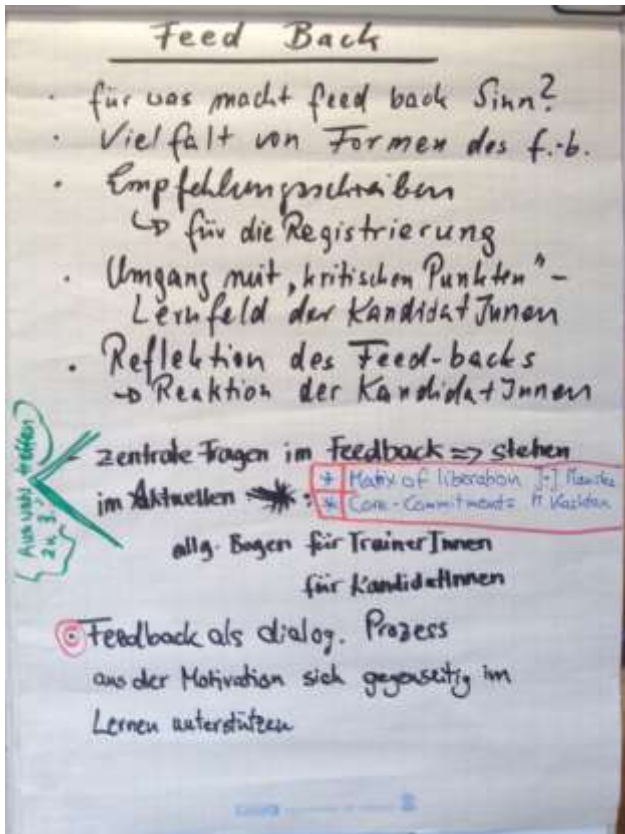 Feed Back
· für was macht feed back Sinn?
· Vielfalt von Formen des f.-b.
· Empfehlungsschreiben
↳ für die Registrierung
· Umgang mit „kritischen Punkten" -
Lernfeld der KandidatInnen
· Reflektion des Feed-backs
→ Reaktion der KandidatInnen
- zentrale Fragen im Feedback => stehen
im Aktuellen :
* Matix of liberation
* Core-Commitments
allg. Bogen für TrainerInnen
für KandidatInnen
Auswahl treffen
zu 3.
Feedback als dialog. Prozess
aus der Motivation sich gegenseitig im
Lernen unterstützen